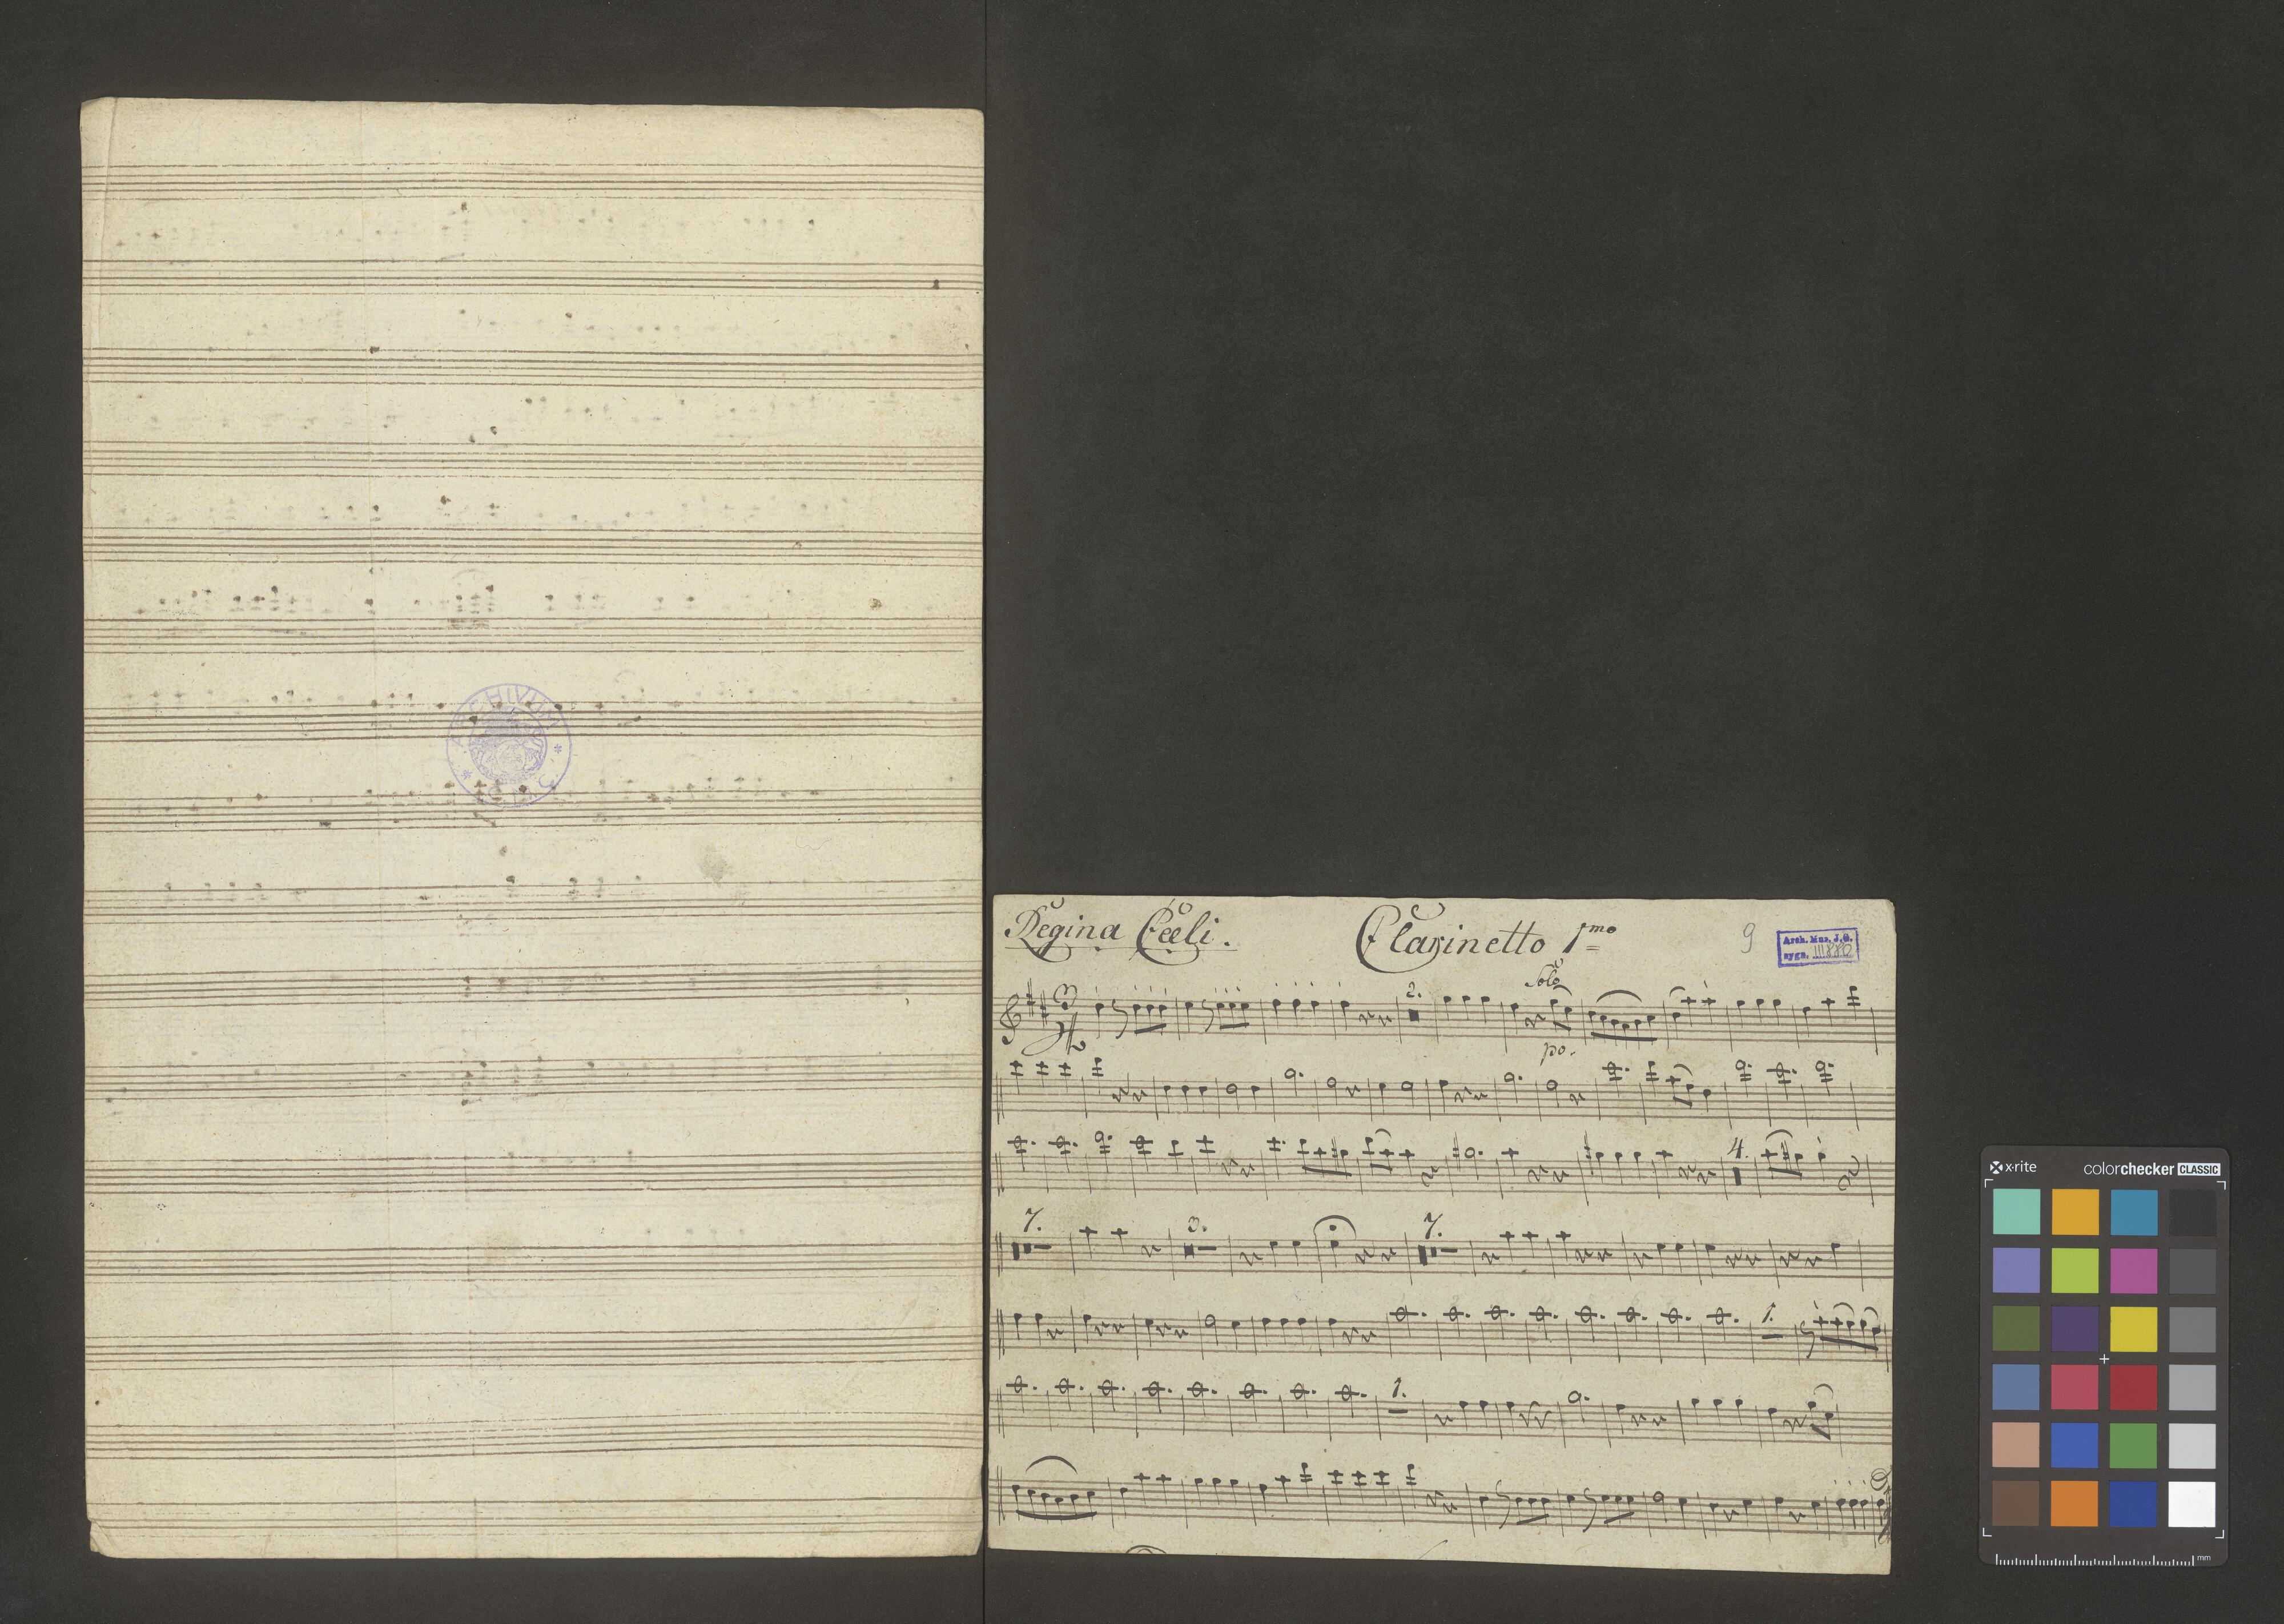 ARCHIVUM
Regina Cœli. Clarinetto 1mo 9
Arch. Muz. J.G.
sygn. III 880
Solo
2.
po.
4.
7. 3. 7.
1.
1.
x-rite colorchecker CLASSIC
mm